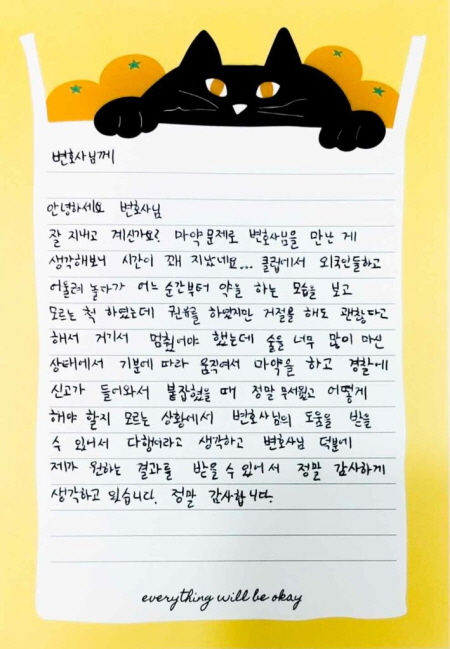 변호사님께
안녕하세요 변호사님
잘 지내고 계신가요? 마약문제로 변호사님을 만난 게
생각해보니 시간이 꽤 지났네요... 클럽에서 외국인들하고
어울려 놀다가 어느 순간부터 약을 하는 모습을 보고
모르는 척 하였는데 권유를 하였지만 거절을 해도 괜찮다고
해서 거기서 멈췄어야 했는데 술을 너무 많이 마신
상태에서 기분에 따라 움직여서 마약을 하고 경찰에
신고가 들어와서 붙잡혔을 때 정말 무서웠고 어떻게
해야 할지 모르는 상황에서 변호사님의 도움을 받을
수 있어서 다행이라고 생각하고 변호사님 덕분에
제가 원하는 결과를 받을 수 있어서 정말 감사하게
생각하고 있습니다. 정말 감사합니다.
everything will be okay